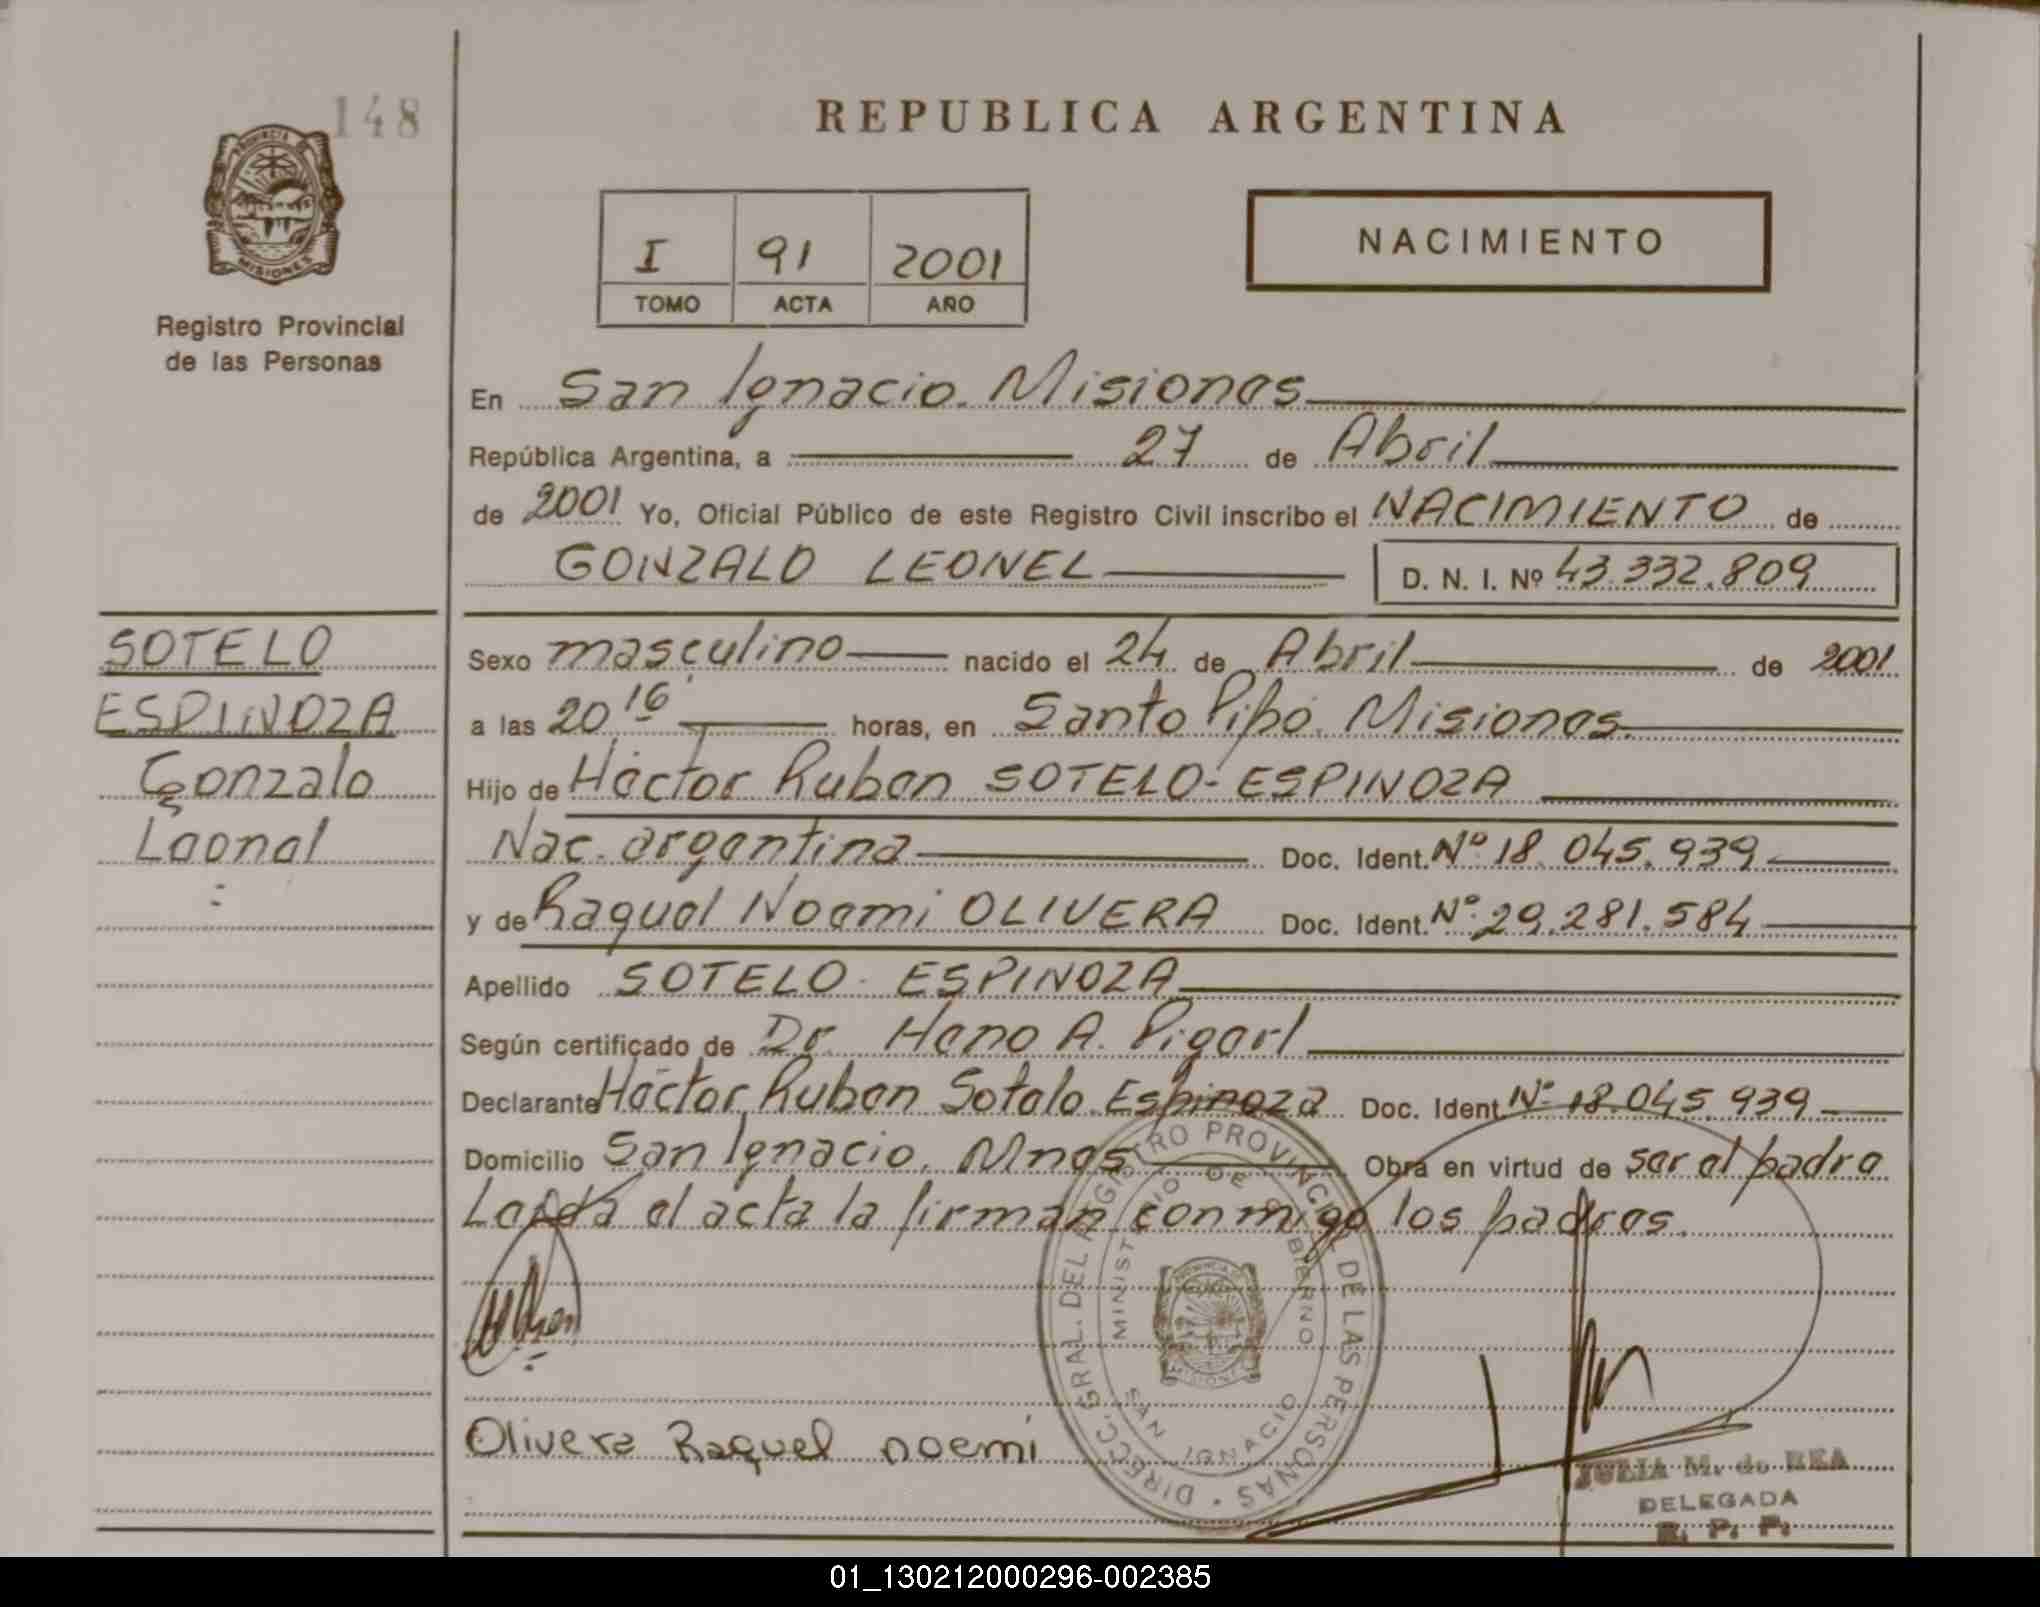 148
PROVINCIA DE
MISIONES
Registro Provincial
de las Personas
SOTELO
ESPINOZA
Gonzalo
Leonel
REPUBLICA ARGENTINA
I 91 2001
TOMO ACTA AÑO
NACIMIENTO
En San Ignacio. Misiones
República Argentina, a 27 de Abril
de 2001 Yo, Oficial Público de este Registro Civil inscribo el NACIMIENTO de
GONZALO LEONEL D. N. I. Nº 43.332.809
Sexo masculino nacido el 24 de Abril de 2001
a las 20 16 horas, en Santo Pipó. Misiones.
Hijo de Héctor Ruben SOTELO-ESPINOZA
Nac. argentina Doc. Ident. Nº 18.045.939
y de Raquel Noemi OLIVERA Doc. Ident. Nº 29.281.584
Apellido SOTELO-ESPINOZA
Según certificado de Dr. Heno A. Pigerl
Declarante Héctor Ruben Sotelo Espinoza Doc. Ident. Nº 18.045.939
Domicilio San Ignacio. Mnes Obra en virtud de ser el padre
Leída el acta la firman conmigo los padres.
Olivera Raquel noemi
DIRECC. GRAL. DEL REGISTRO PROVINCIAL DE LAS PERSONAS
MINISTERIO DE GOBIERNO
SAN IGNACIO
JULIA M. de REA
DELEGADA
R. P. P.
01_130212000296-002385